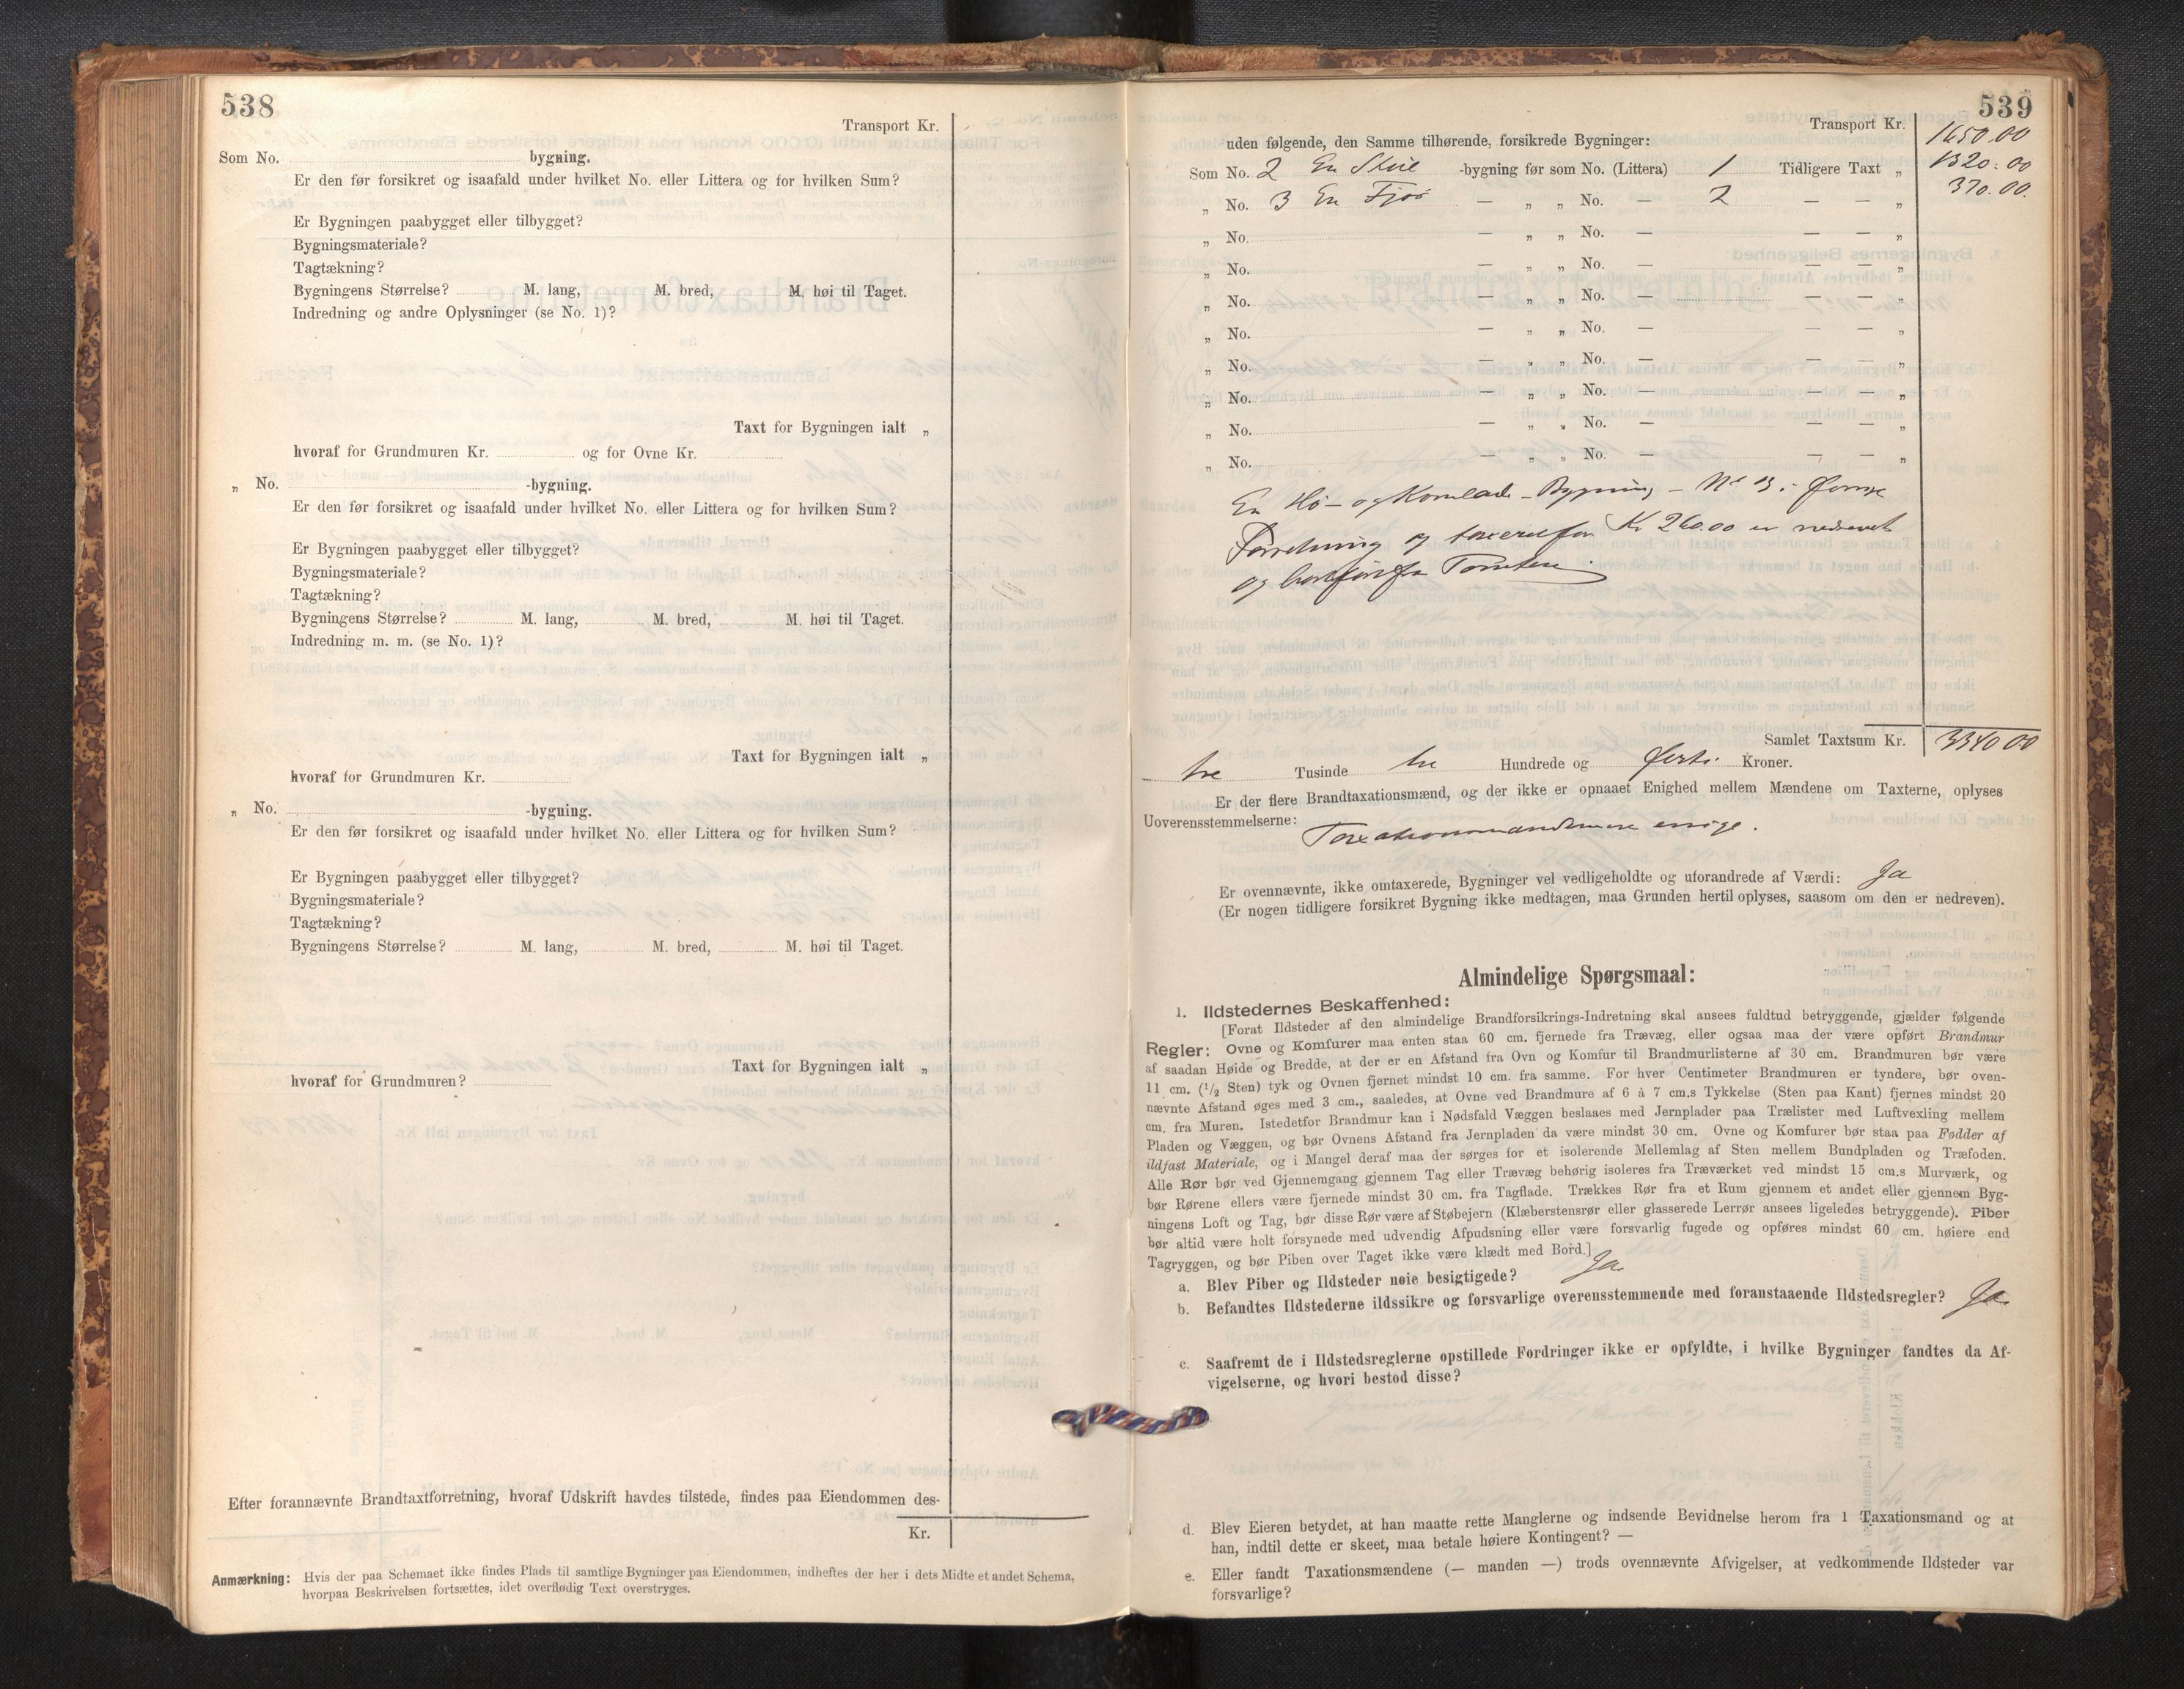 538
Transport Kr.
Som No. bygning.
Er den før forsikret og isaafald under hvilket No. eller Littera og for hvilken Sum?
Er Bygningen paabygget eller tilbygget?
Bygningsmateriale?
Tagtækning?
Bygningens Størrelse? M. lang, M. bred, M. høi til Taget.
Indredning og andre Oplysninger (se No. 1)?
Taxt for Bygningen ialt „
hvoraf for Grundmuren Kr. og for Ovne Kr.
„ No. -bygning.
Er den før forsikret og isaafald under hvilket No. eller Littera og for hvilken Sum?
Er Bygningen paabygget eller tilbygget?
Bygningsmateriale?
Tagtækning?
Bygningens Størrelse? M. lang, M. bred, M. høi til Taget.
Indredning m. m. (se No. 1)?
Taxt for Bygningen ialt „
hvoraf for Grundmuren Kr.
„ No. -bygning.
Er den før forsikret og isaafald under hvilket No. eller Littera og for hvilken Sum?
Er Bygningen paabygget eller tilbygget?
Bygningsmateriale?
Tagtækning?
Bygningens Størrelse? M. lang, M. bred, M. høi til Taget.
Taxt for Bygningen ialt „
hvoraf for Grundmuren?
Efter forannævnte Brandtaxtforretning, hvoraf Udskrift havdes tilstede, findes paa Eiendommen des-
Kr.
Anmærkning: Hvis der paa Schemaet ikke findes Plads til samtlige Bygninger paa Eiendommen, indheftes der her i dets Midte et andet Schema,
hvorpaa Beskrivelsen fortsættes, idet overflødig Text overstryges.
539
Transport Kr. 1650.00
uden følgende, den Samme tilhørende, forsikrede Bygninger:
Som No. 2 En Stue -bygning før som No. (Littera) 1 Tidligere Taxt „ 1320.00
„ No. 3 En Fjøs — „ „ No. — 2 — — „ 370.00.
„ No. — „ „ No. — — — „
„ No. — „ „ No. — — — „
„ No. — „ „ No. — — — „
„ No. — „ „ No. — — — „
„ No. — „ „ No. — — — „
„ No. — „ „ No. — — — „
„ No. — „ „ No. — — — „
„ No. — „ „ No. — — — „
En Hø- og Kornlade-Bygning - No 3 i forrige
Forretning og taxeret for Kr 260.00 er nedrevet
og bortført fra Tomten.
Samlet Taxtsum Kr. 3340 00
tre Tusinde tre Hundrede og førti Kroner.
Er der flere Brandtaxationsmænd, og der ikke er opnaaet Enighed mellem Mændene om Taxterne, oplyses
Uoverensstemmelserne:
Taxationsmændene enige.
Er ovennævnte, ikke omtaxerede, Bygninger vel vedligeholdte og uforandrede af Værdi: Ja
(Er nogen tidligere forsikret Bygning ikke medtagen, maa Grunden hertil oplyses, saasom om den er nedreven).
Almindelige Spørgsmaal:
1. Ildstedernes Beskaffenhed:
[Forat Ildsteder af den almindelige Brandforsikrings-Indretning skal ansees fuldtud betryggende, gjælder følgende
Regler: Ovne og Komfurer maa enten staa 60 cm. fjernede fra Trævæg, eller ogsaa maa der være opført Brandmur
af saadan Høide og Bredde, at der er en Afstand fra Ovn og Komfur til Brandmurlisterne af 30 cm. Brandmuren bør være
11 cm. (1/2 Sten) tyk og Ovnen fjernet mindst 10 cm. fra samme. For hver Centimeter Brandmuren er tyndere, bør oven-
nævnte Afstand øges med 3 cm., saaledes, at Ovne ved Brandmure af 6 à 7 cm.s Tykkelse (Sten paa Kant) fjernes mindst 20
cm. fra Muren. Istedetfor Brandmur kan i Nødsfald Væggen beslaaes med Jernplader paa Trælister med Luftvexling mellem
Pladen og Væggen, og bør Ovnens Afstand fra Jernpladen da være mindst 30 cm. Ovne og Komfurer bør staa paa Fødder af
ildfast Materiale, og i Mangel deraf maa der sørges for et isolerende Mellemlag af Sten mellem Bundpladen og Træfoden.
Alle Rør bør ved Gjennemgang gjennem Tag eller Trævæg behørig isoleres fra Træværket ved mindst 15 cm.s Murværk, og
bør Rørene ellers være fjernede mindst 30 cm. fra Tagflade. Trækkes Rør fra et Rum gjennem et andet eller gjennem Byg-
ningens Loft og Tag, bør disse Rør være af Støbejern (Klæberstensrør eller glasserede Lerrør ansees ligeledes betryggende). Piber
bør altid være helt forsynede med udvendig Afpudsning eller være forsvarlig fugede og opføres mindst 60 cm. høiere end
Tagryggen, og bør Piben over Taget ikke være klædt med Bord.]
a. Blev Piber og Ildsteder nøie besigtigede? Ja
b. Befandtes Ildstederne ildssikre og forsvarlige overensstemmende med foranstaaende Ildstedsregler? Ja
c. Saafremt de i Ildstedsreglerne opstillede Fordringer ikke er opfyldte, i hvilke Bygninger fandtes da Af-
vigelserne, og hvori bestod disse?
d. Blev Eieren betydet, at han maatte rette Manglerne og indsende Bevidnelse herom fra 1 Taxationsmand og at
han, indtil dette er skeet, maa betale høiere Kontingent? —
e. Eller fandt Taxationsmændene (— manden —) trods ovennævnte Afvigelser, at vedkommende Ildsteder var
forsvarlige?